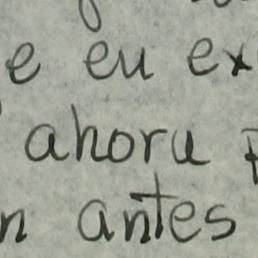 e eu ex
ahora
n antes